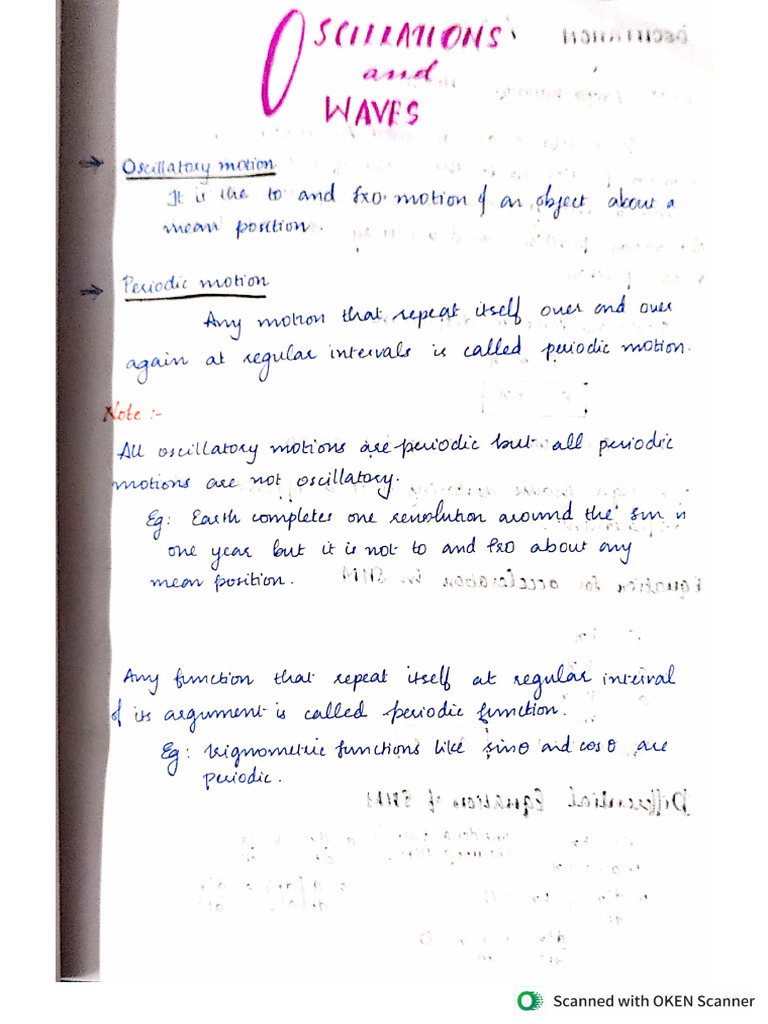 OSCILLATIONS
and
WAVES
→ Oscillatory motion
It is the to and fro motion of an object about a
mean position.
→ Periodic motion
Any motion that repeat itself over and over
again at regular intervals is called periodic motion.
Note :-
All oscillatory motions are periodic but all periodic
motions are not oscillatory.
Eg: Earth completes one revolution around the sun in
one year but it is not to and fro about any
mean position.
Any function that repeat itself at regular interval
of its argument is called periodic function.
Eg: trignometric functions like sinθ and cosθ are
periodic.
Scanned with OKEN Scanner